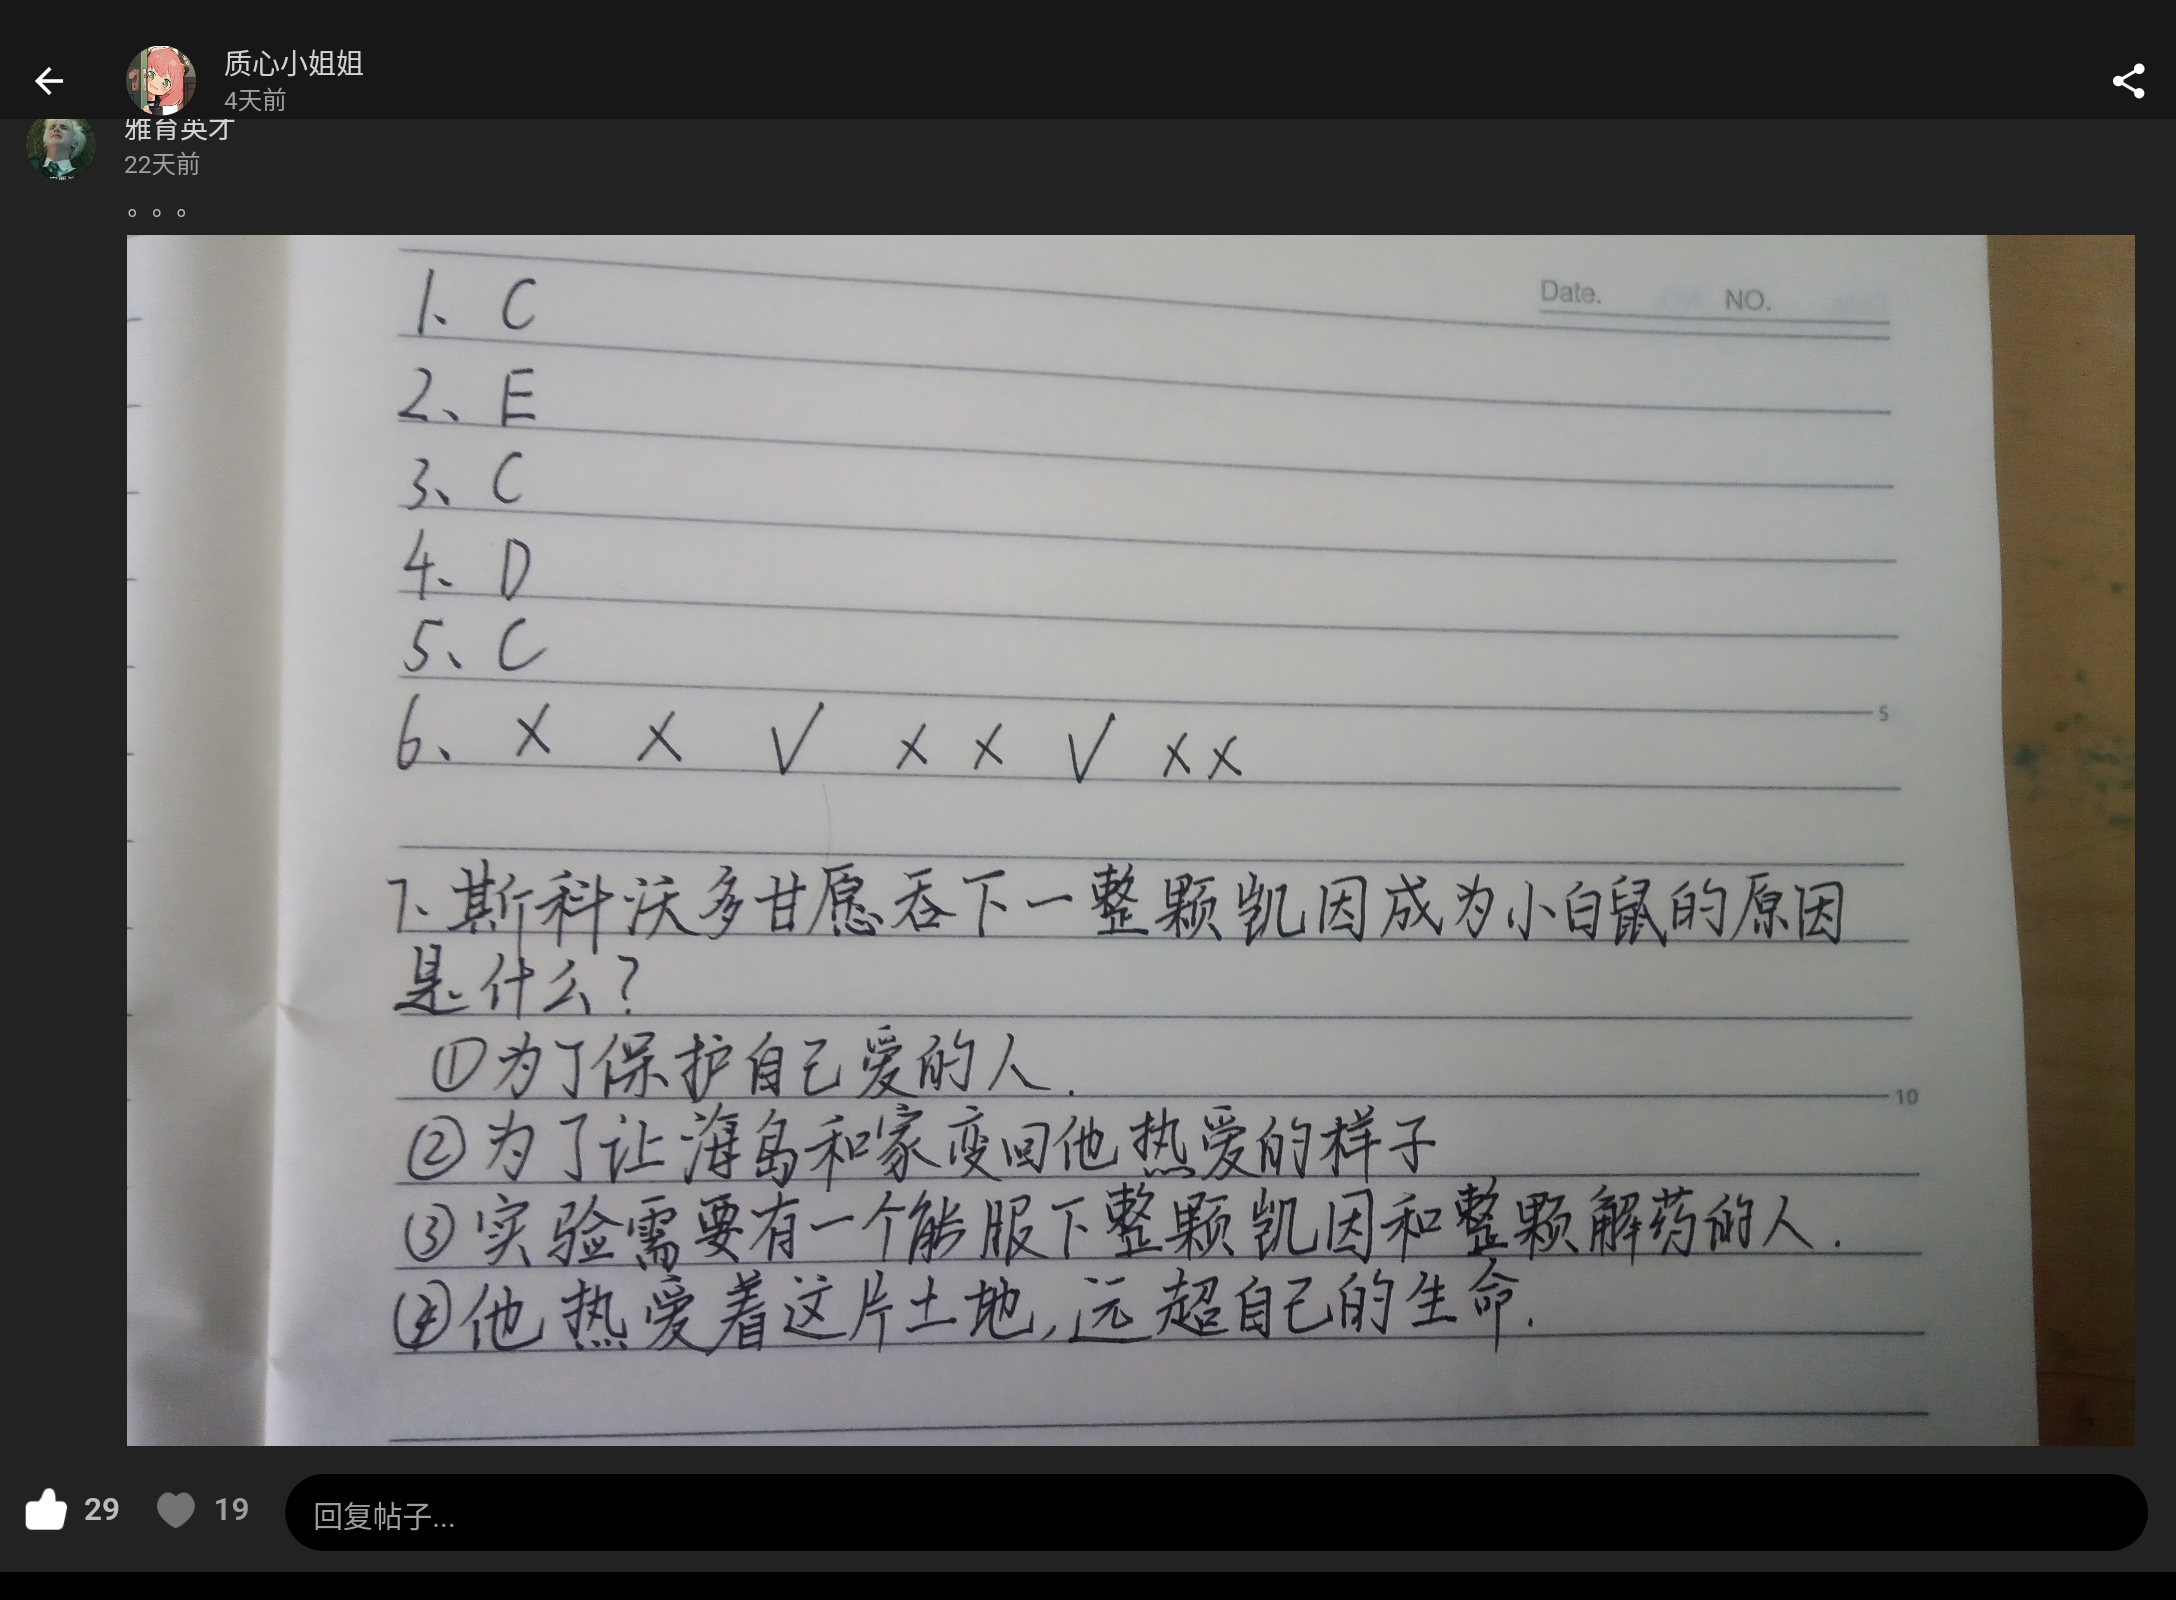 质心小姐姐
4天前
雅育英才
22天前
。。。
Date. NO.
1、C
2、E
3、C
4、D
5、C
5
6、× × √ × × √ × ×
7、斯科沃多甘愿吞下一整颗凯因成为小白鼠的原因
是什么?
①为了保护自己爱的人.
10
②为了让海岛和家变回他热爱的样子
③实验需要有一个能服下整颗凯因和整颗解药的人.
④他热爱着这片土地,远超自己的生命.
29 19 回复帖子...